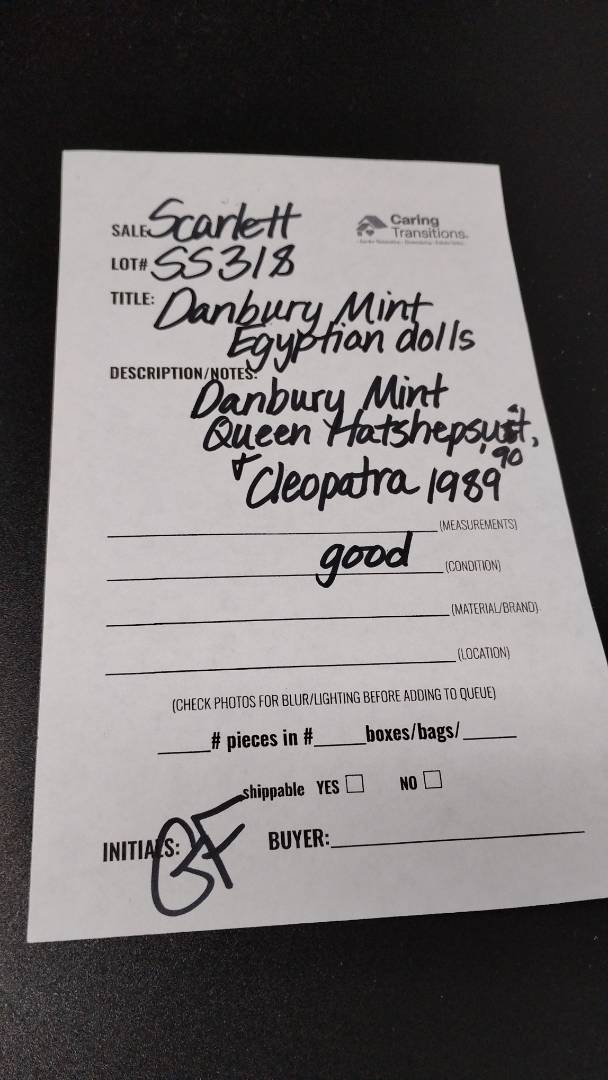 SALE Scarlett
Caring
Transitions.
LOT# SS318
TITLE: Danbury Mint
Egyptian dolls
DESCRIPTION/NOTES:
Danbury Mint
Queen Hatshepsut, '90
& Cleopatra 1989
(MEASUREMENTS)
good (CONDITION)
(MATERIAL/BRAND)
(LOCATION)
(CHECK PHOTOS FOR BLUR/LIGHTING BEFORE ADDING TO QUEUE)
# pieces in # boxes/bags/
shippable YES NO
INITIALS: BUYER: